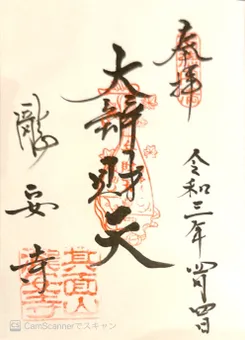 奉拝
令和三年四月四日
大辨財天
瀧安寺
CS CamScannerでスキャン